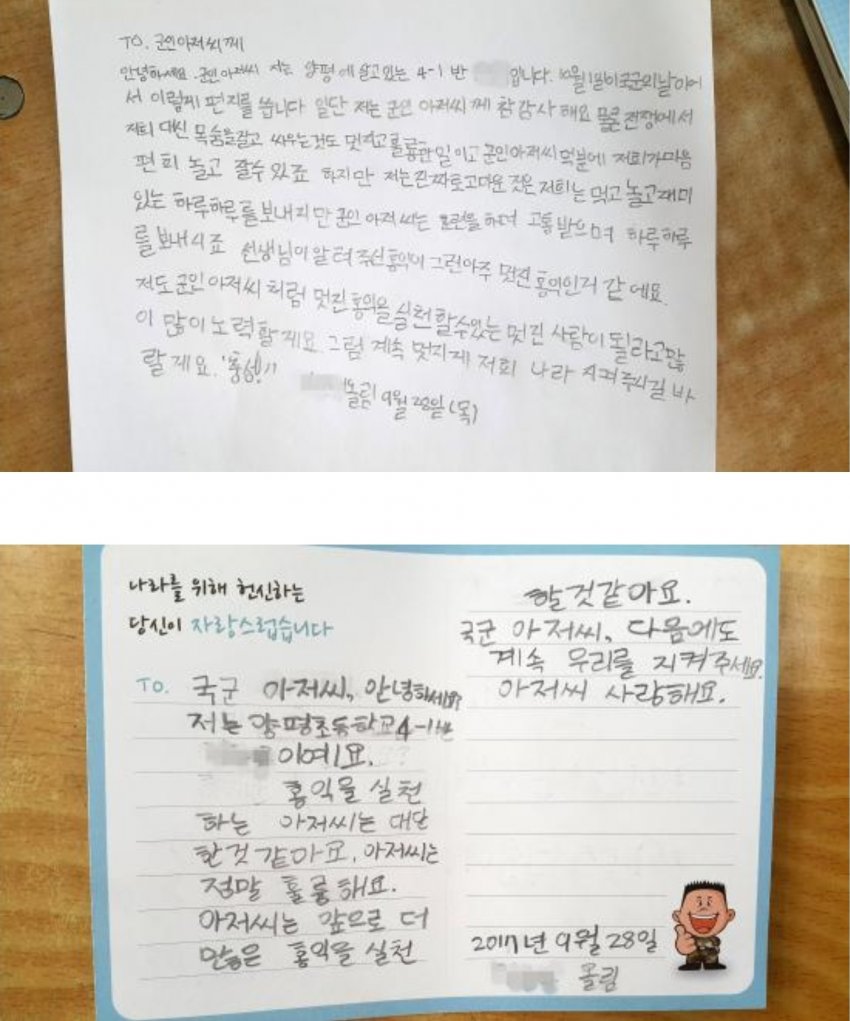 TO. 군인아저씨께
안녕하세요 군인아저씨 저는 양평에 살고있는 4-1 반 입니다. 10월 1일이 국군의 날이어
서 이렇게 편지를 씁니다 일단 저는 군인 아저씨께 참 감사해요 물론 전쟁에서
저희 대신 목숨을 걸고 싸우는것도 멋지고 훌륭한 일이고 군인아저씨 덕분에 저희가 마음
편히 놀고 잘수 있죠 하지만 저는 진짜로 고마운 것은 저희는 먹고 놀고 재미
있는 하루하루를 보내지만 군인 아저씨는 훈련을 하며 고통 받으며 하루하루
를 보내시죠 선생님이 알려주신 홍익이 그런 아주 멋진 홍익인거 같에요
저도 군인아저씨 처럼 멋진 홍익을 실천할수있는 멋진 사람이 될라고 많
이 많이 노력할게요 그럼 계속 멋지게 저희 나라 지켜주시길 바
랄게요. "충성!"
올림 9월 28일 (목)
나라를 위해 헌신하는
당신이 자랑스럽습니다
TO. 국군 아저씨, 안녕하세요?
저는 양평초등학교 4-1반
이예요.
홍익을 실천
하는 아저씨는 대단
한것 같아요. 아저씨는
정말 훌륭해요.
아저씨는 앞으로 더
많은 홍익을 실천
할것같아요.
국군 아저씨, 다음에도
계속 우리를 지켜주세요.
아저씨 사랑해요.
2017년 9월 28일
올림